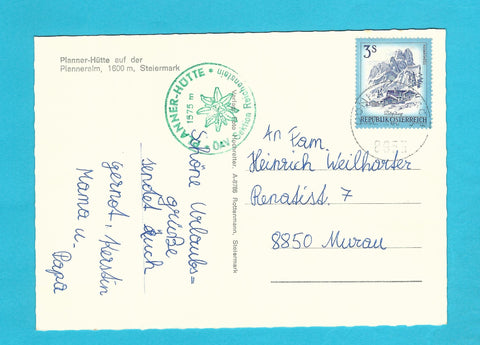 Planner-Hütte auf der
Planneralm, 1600 m, Steiermark
PLANNER-HÜTTE
1575 m
ÖAV Sektion Reichenstein
A-8786 Rottenmann, Steiermark
3S
REPUBLIK ÖSTERREICH
Schöne Urlaubs=
grüße
sendet Euch
Gernot, Kerstin
Mama u. Papa
An Fam.
Heinrich Weilharter
Renatist. 7
8850 Murau